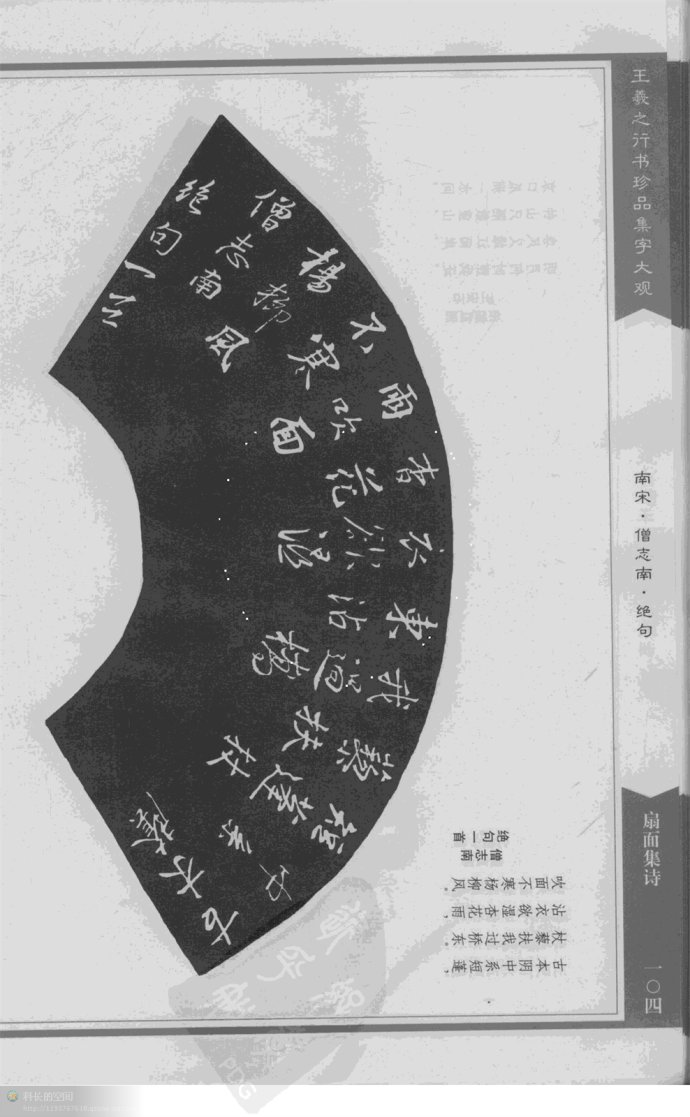 王羲之行书珍品集字大观
南宋·僧志南·绝句
扇面集诗
一〇四
古木陰
中系
短蓬杖
藜扶
我過橋
東沾
衣欲濕
杏花
雨吹面
不寒
楊柳風
僧志南
绝句一首
绝句一首
僧志南
古本阴中系短蓬，
杖藜扶我过桥东。
沾衣欲湿杏花雨，
吹面不寒杨柳风。
PDG
科长的空间